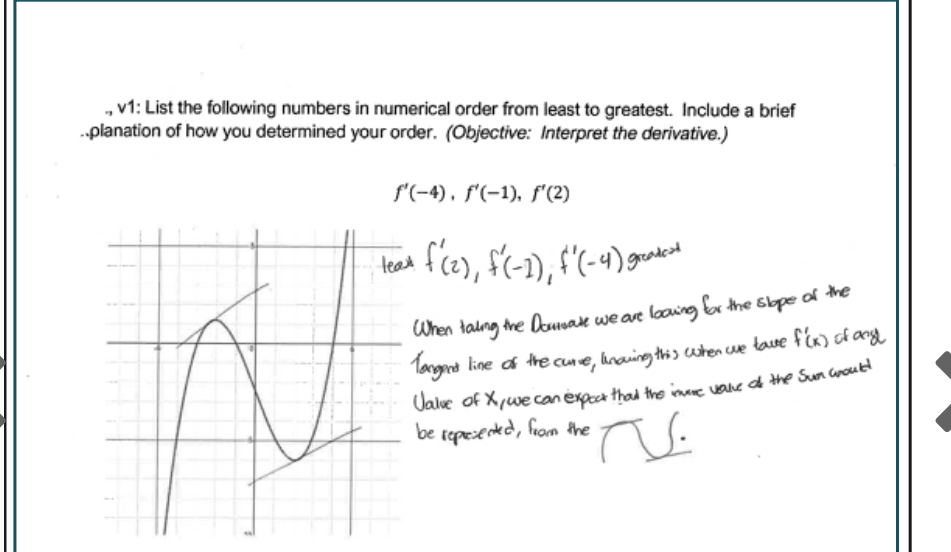 ., v1: List the following numbers in numerical order from least to greatest. Include a brief
..planation of how you determined your order. (Objective: Interpret the derivative.)
f'(−4), f'(−1), f'(2)
least f'(2), f'(-1), f'(-4) greatest
When taking the we are looking for the slope of the
Tangent line of the curve, knowing this when we have f'(x) of any
Value of X, we can expect that the value of the would
be represented, from the